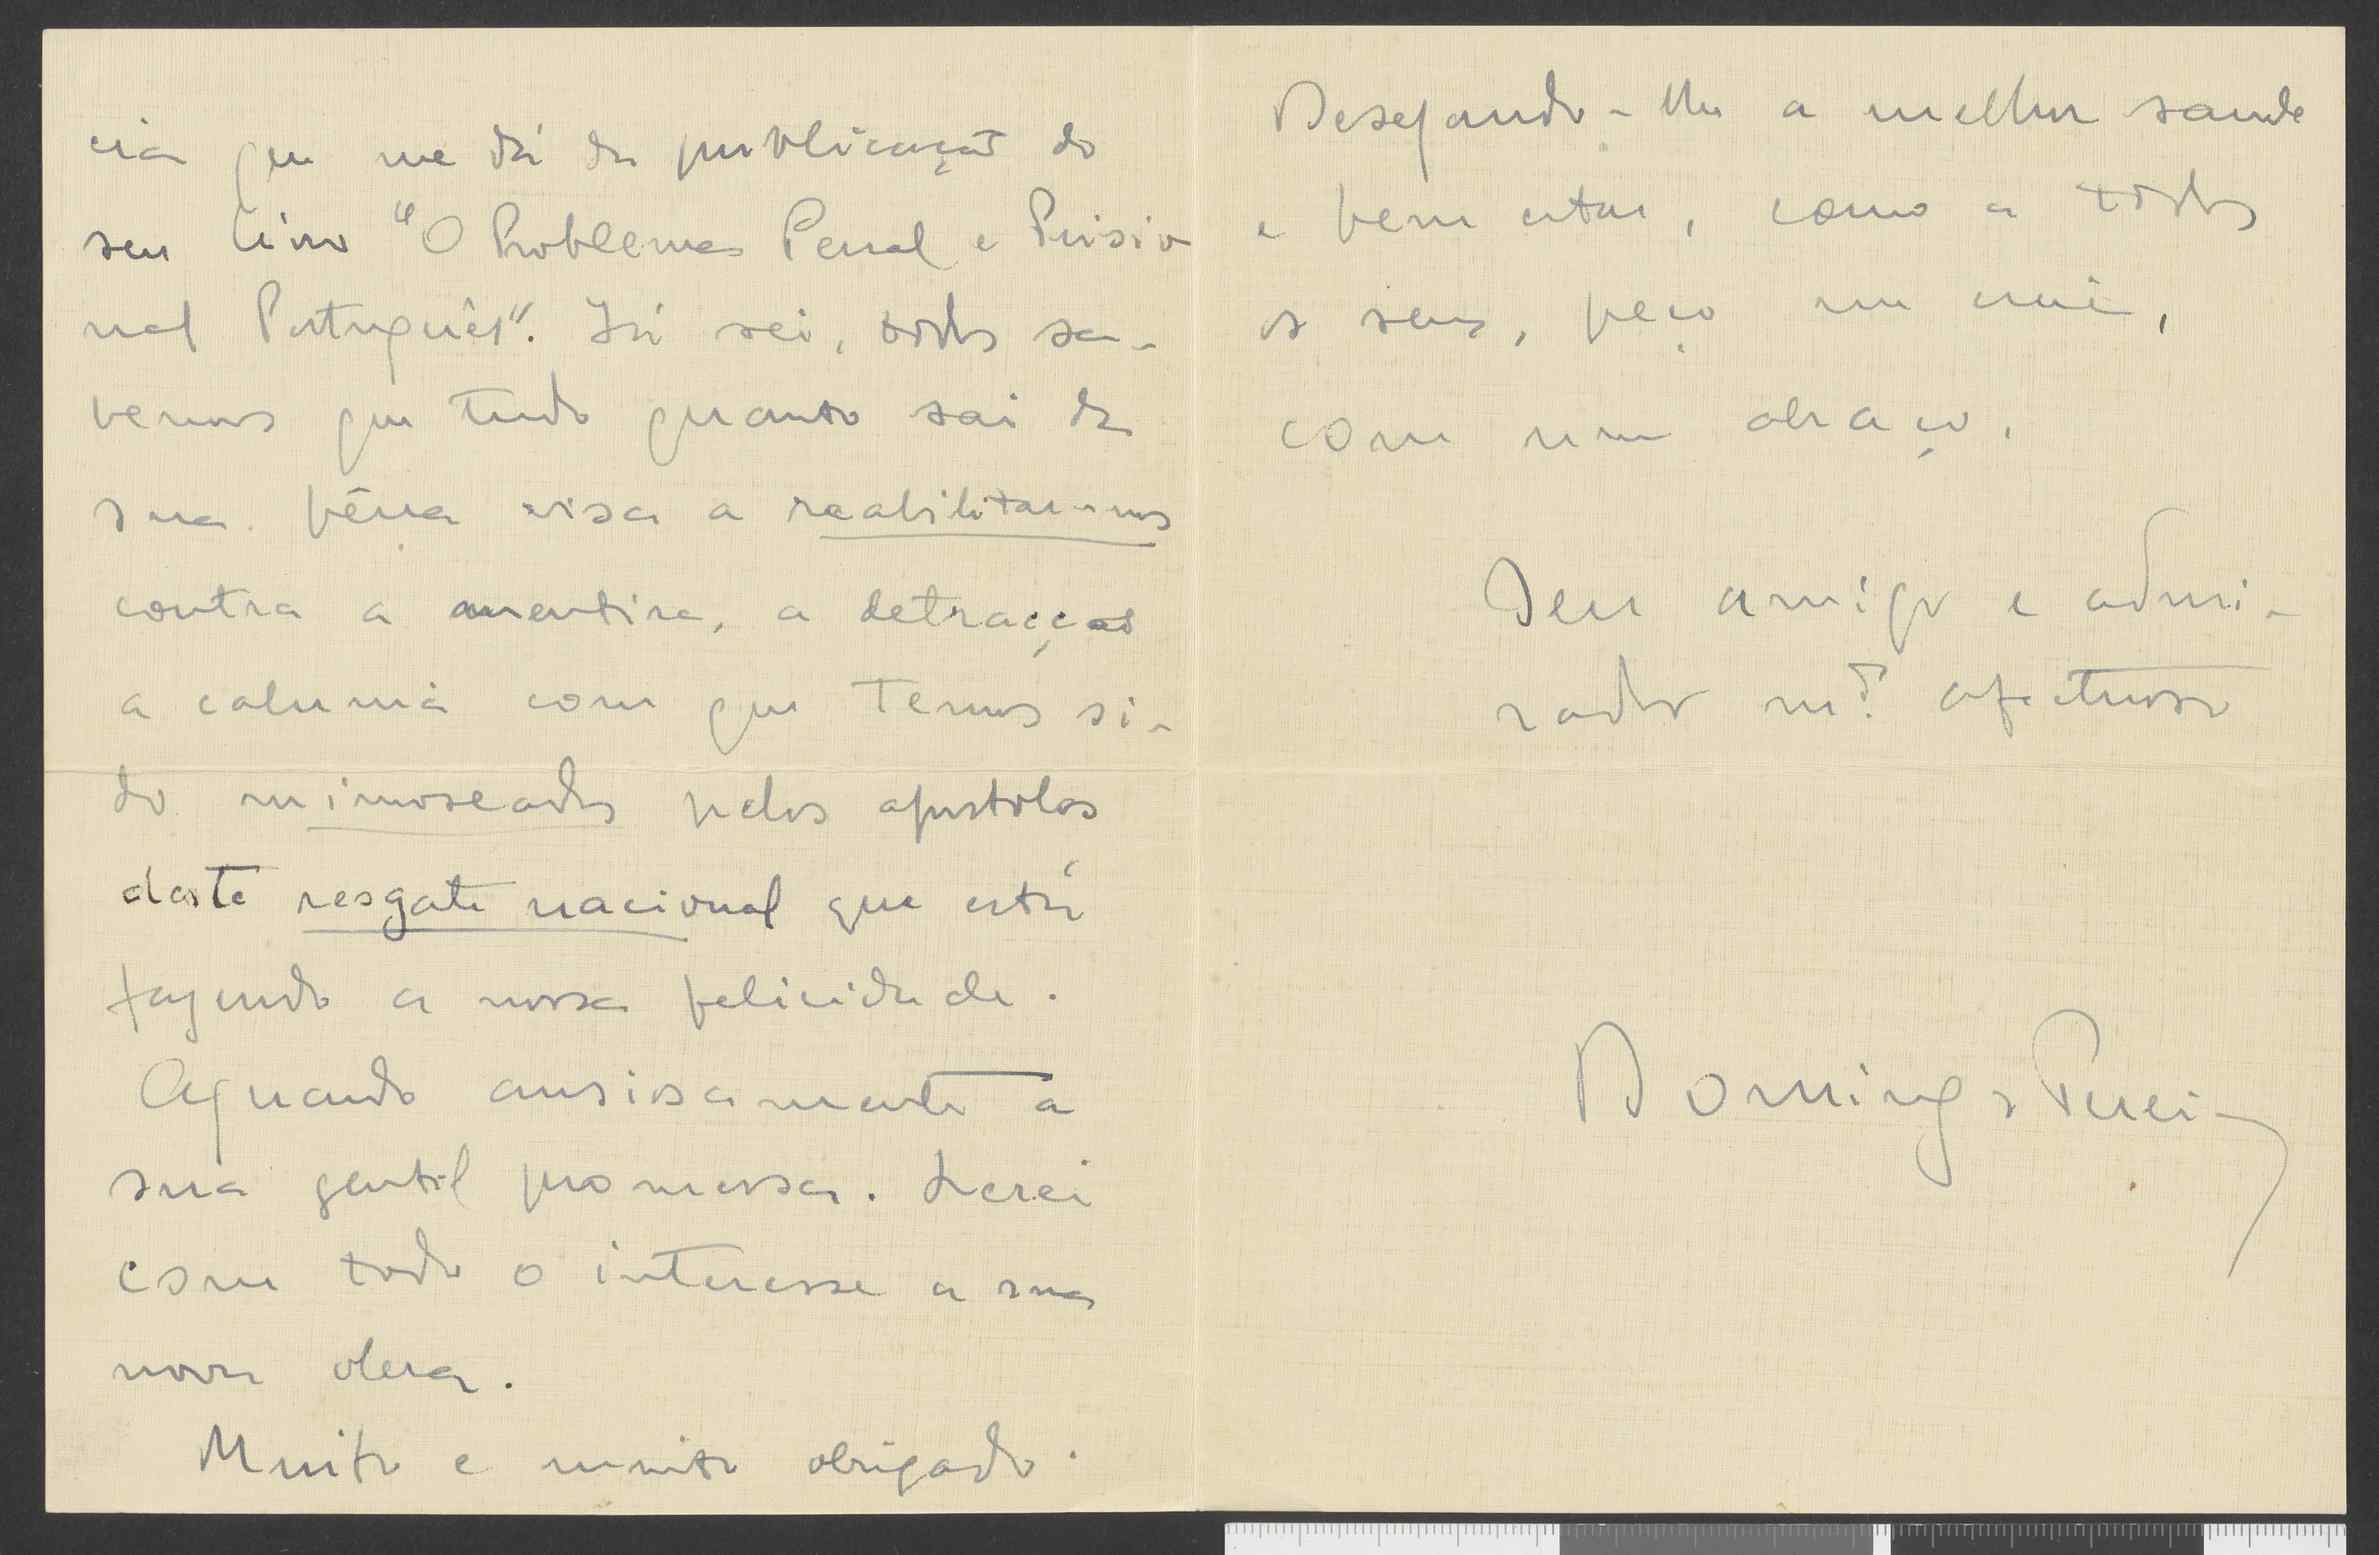 cia que me dá da publicação do
seu livro "O Problema Penal e Prisio
nal Português". Já sei, todos sa-
bemos que tudo quanto sai da
sua pêna visa a reabilitar-nos
contra a mentira, a detracção
a calunia com que temos si-
do mimoseados pelos apostolos
deste resgate nacional que está
fazendo a nossa felicidade.
Aguardo ansiosamente a
sua gentil promessa. Lerei
com todo o interesse a sua
nova obra.
Muito e muito obrigado.
Desejando-lhe a melhor saude
e bem estar, como a todos
os seus, peço me creia,
com um abraço,
Seu amigo e admi-
rador mto afectuoso
Domingos Pereira